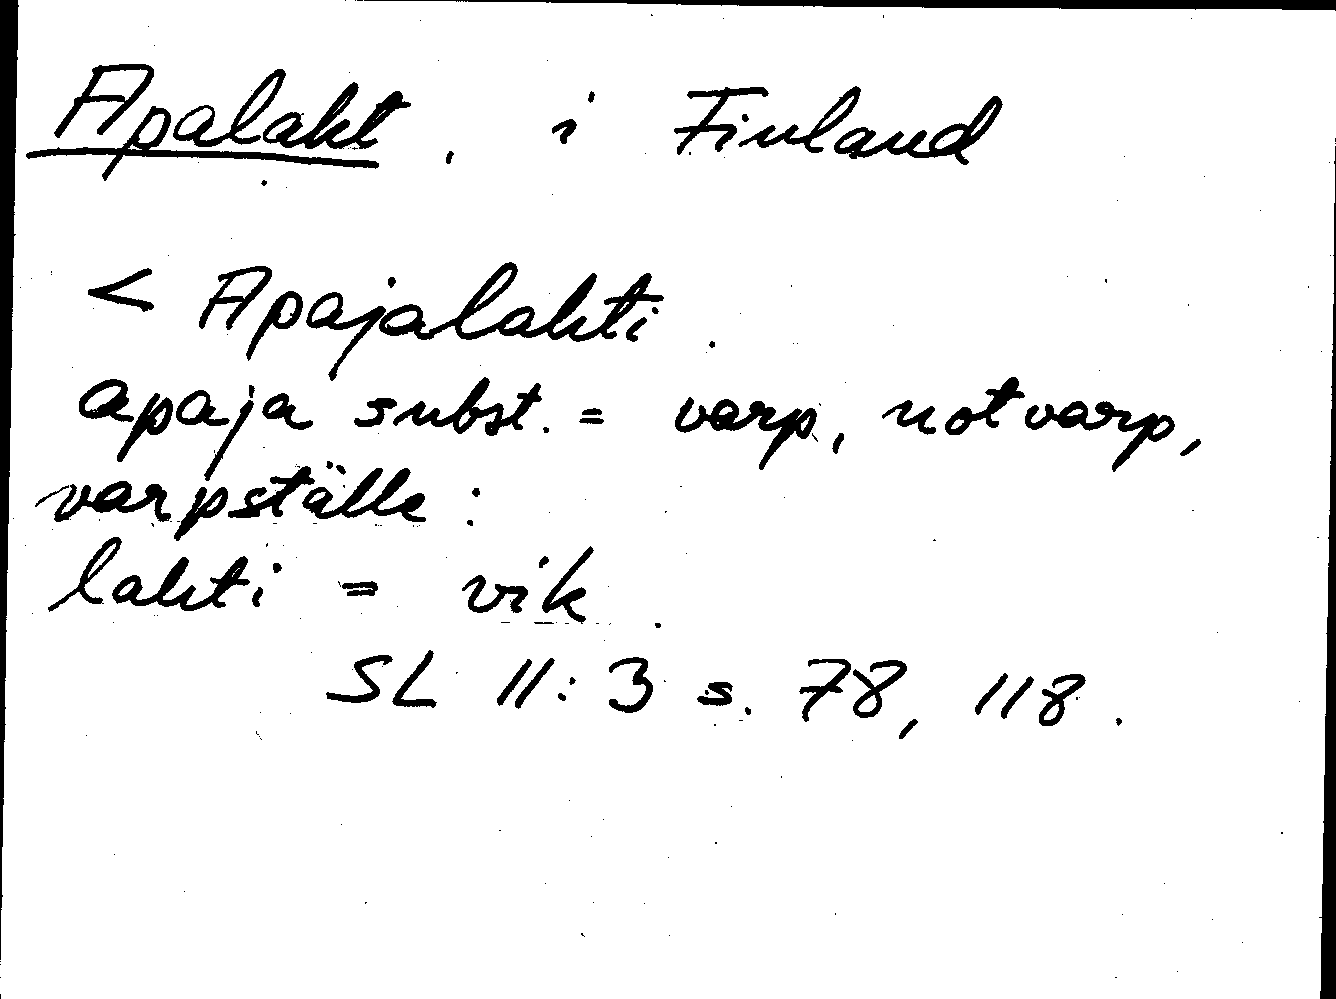 Apalaht. i Finland
< Apajalahti.
apaja subst. = varp, notvarp,
varpställe:
lahti = vik.
SL 11:3 s. 78, 118.